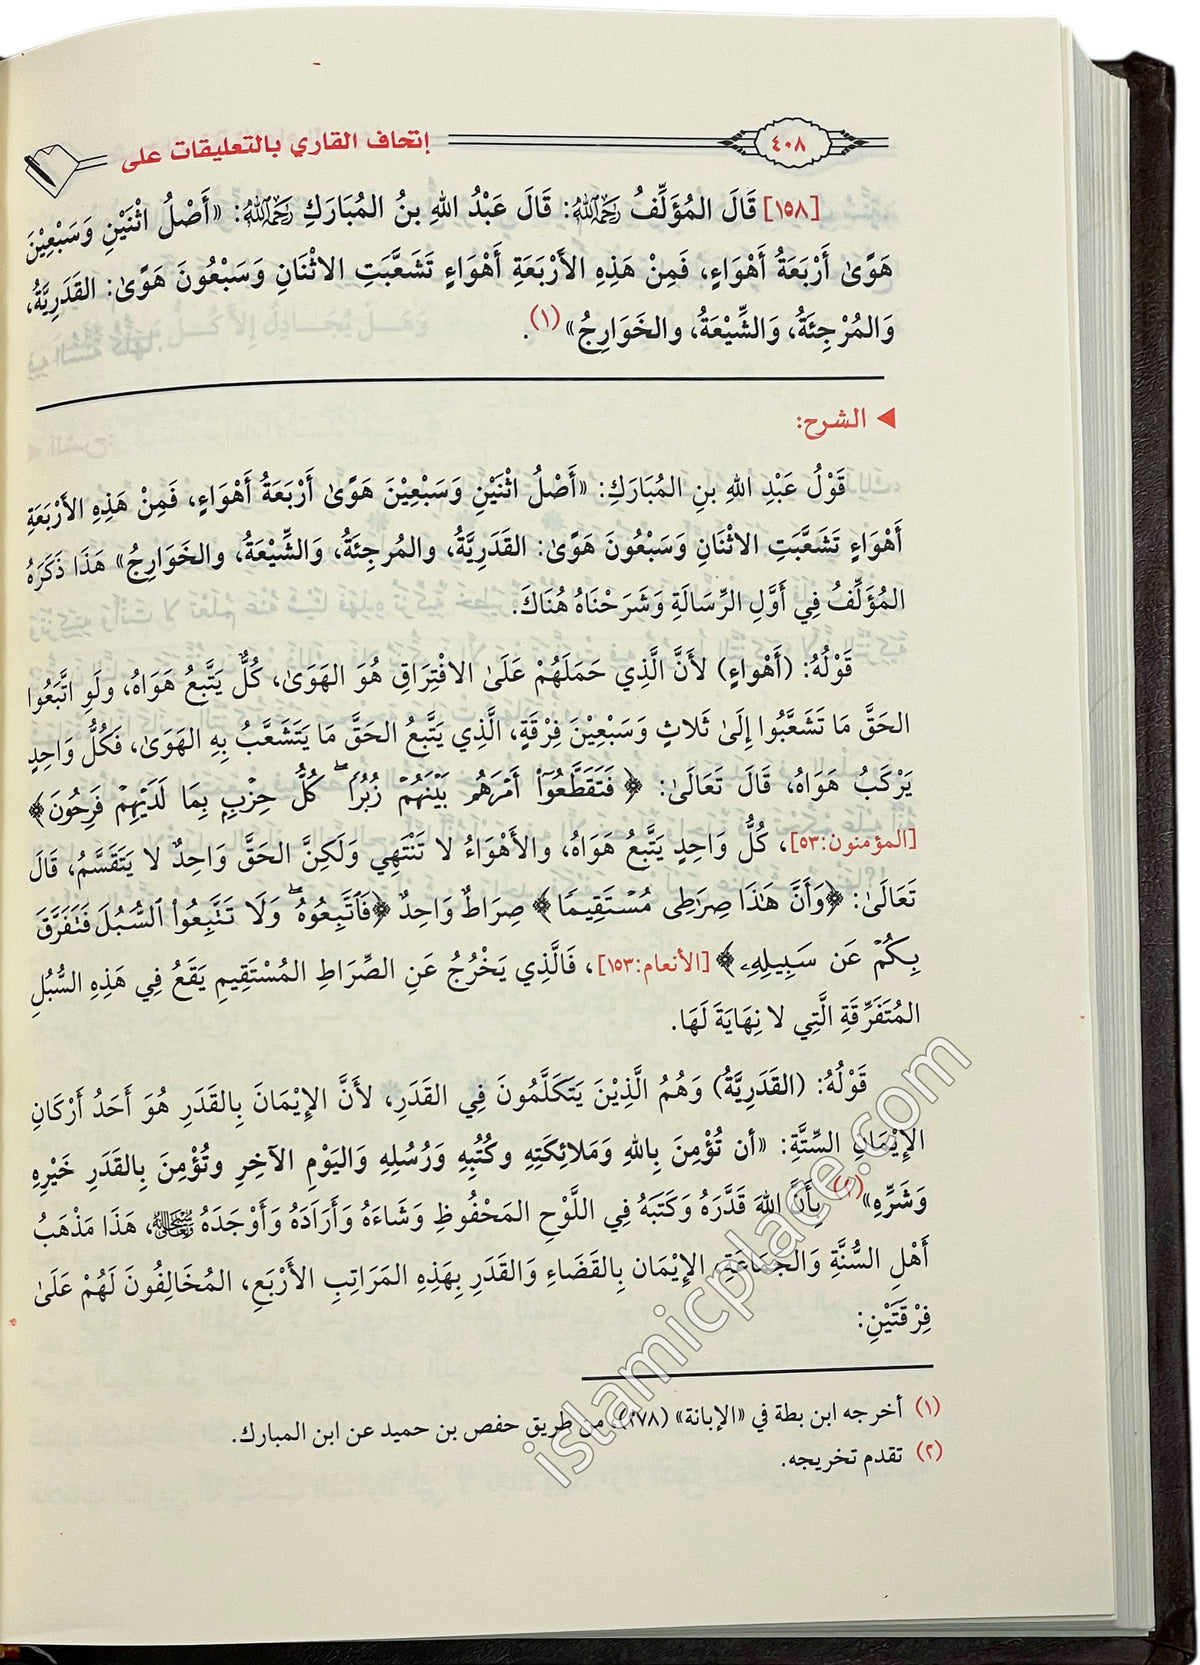 ٤٠٨
إتحاف القاري بالتعليقات على
[١٥٨] قَالَ المُؤَلِّفُ رَحِمَهُ اللهُ: قَالَ عَبْدُ اللهِ بنُ المُبَارَكِ رَحِمَهُ اللهُ: «أَصْلُ اثْنَيْنِ وَسَبْعِيْنَ
هَوًى أَرْبَعَةُ أَهْوَاءٍ، فَمِنْ هَذِهِ الأَرْبَعَةِ أَهْوَاءٍ تَشَعَّبَتِ الاثْنَانِ وَسَبْعُونَ هَوًى: القَدَرِيَّةُ،
وَالمُرْجِئَةُ، وَالشِّيْعَةُ، والخَوَارِجُ»(١).
◄ الشرح:
قَوْلُ عَبْدِ اللهِ بنِ المُبَارَكِ: «أَصْلُ اثْنَيْنِ وَسَبْعِيْنَ هَوًى أَرْبَعَةُ أَهْوَاءٍ، فَمِنْ هَذِهِ الأَرْبَعَةِ
أَهْوَاءٍ تَشَعَّبَتِ الاثْنَانِ وَسَبْعُونَ هَوًى: القَدَرِيَّةُ، والمُرجِئَةُ، وَالشِّيْعَةُ، والخَوَارِجُ» هَذَا ذَكَرَهُ
المُؤَلِّفُ فِي أَوَّلِ الرِّسَالَةِ وَشَرَحْنَاهُ هُنَاكَ.
قَوْلُهُ: (أَهْوَاءٍ) لأَنَّ الَّذِي حَمَلَهُمْ عَلَى الافْتِرَاقِ هُوَ الهَوَى، كُلٌّ يَتَّبِعُ هَوَاهُ، ولَوِ اتَّبَعُوا
الحَقَّ مَا تَشَعَّبُوا إِلَى ثَلاثٍ وَسَبْعِيْنَ فِرْقَةٍ، الَّذِي يَتَّبِعُ الحَقَّ مَا يَتَشَعَّبُ بِهِ الهَوَى، فَكُلُّ وَاحِدٍ
يَرْكَبُ هَوَاهُ، قَالَ تَعَالَى: ﴿فَتَقَطَّعُوٓاْ أَمۡرَهُم بَيۡنَهُمۡ زُبُرٗاۖ كُلُّ حِزۡبِۭ بِمَا لَدَيۡهِمۡ فَرِحُونَ﴾
[المؤمنون:٥٣]، كُلُّ وَاحِدٍ يَتَّبِعُ هَوَاهُ، والأَهْوَاءُ لا تَنْتَهِي وَلَكِنَّ الحَقَّ وَاحِدٌ لا يَتَقَسَّمُ، قَالَ
تَعَالَى: ﴿وَأَنَّ هَٰذَا صِرَٰطِي مُسۡتَقِيمٗا﴾ صِرَاطٌ وَاحِدٌ ﴿فَٱتَّبِعُوهُۖ وَلَا تَتَّبِعُواْ ٱلسُّبُلَ فَتَفَرَّقَ
بِكُمۡ عَن سَبِيلِهِۦ﴾ [الأنعام:١٥٣]، فَالَّذِي يَخْرُجُ عَنِ الصِّرَاطِ المُسْتَقِيمِ يَقَعُ فِي هَذِهِ السُّبُلِ
المُتَفَرِّقَةِ الَّتِي لا نِهَايَةَ لَهَا.
قَوْلُهُ: (القَدَرِيَّةُ) وَهُمُ الَّذِيْنَ يَتَكَلَّمُونَ فِي القَدَرِ، لأَنَّ الإِيْمَانَ بِالقَدَرِ هُوَ أَحَدُ أَرْكَانِ
الإِيْمَانِ السِّتَّةِ: «أن تُؤْمِنَ بِاللهِ وَمَلائِكَتِهِ وكُتُبِهِ وَرُسُلِهِ وَاليَوْمِ الآخِرِ وتُؤْمِنَ بِالقَدَرِ خَيْرِهِ
وَشَرِّهِ»(٢) بِأَنَّ اللهَ قَدَّرَهُ وَكَتَبَهُ فِي اللَّوْحِ المَحْفُوظِ وَشَاءَهُ وَأَرَادَهُ وَأَوْجَدَهُ ﷾، هَذَا مَذْهَبُ
أَهْلِ السُّنَّةِ وَالجَمَاعَةِ الإِيْمَان بِالقَضَاءِ وَالقَدَرِ بِهَذِهِ المَرَاتِبِ الأَرْبَعِ، المُخَالِفُونَ لَهُمْ عَلَى
فِرْقَتَيْنِ:
(١) أخرجه ابن بطة في «الإبانة» (٢٧٨)، من طريق حفص بن حميد عن ابن المبارك.
(٢) تقدم تخريجه.
islamicplace.com